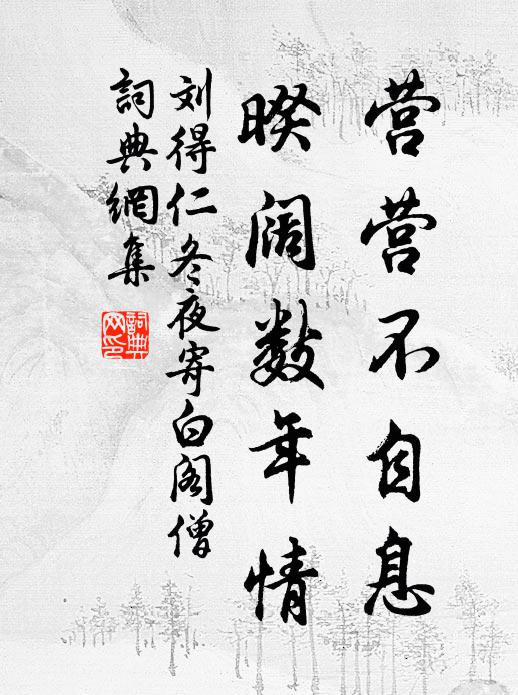 营营不自息
暌阔数年情
刘得仁冬夜寄白阁僧
詞典網集
詞典
网印